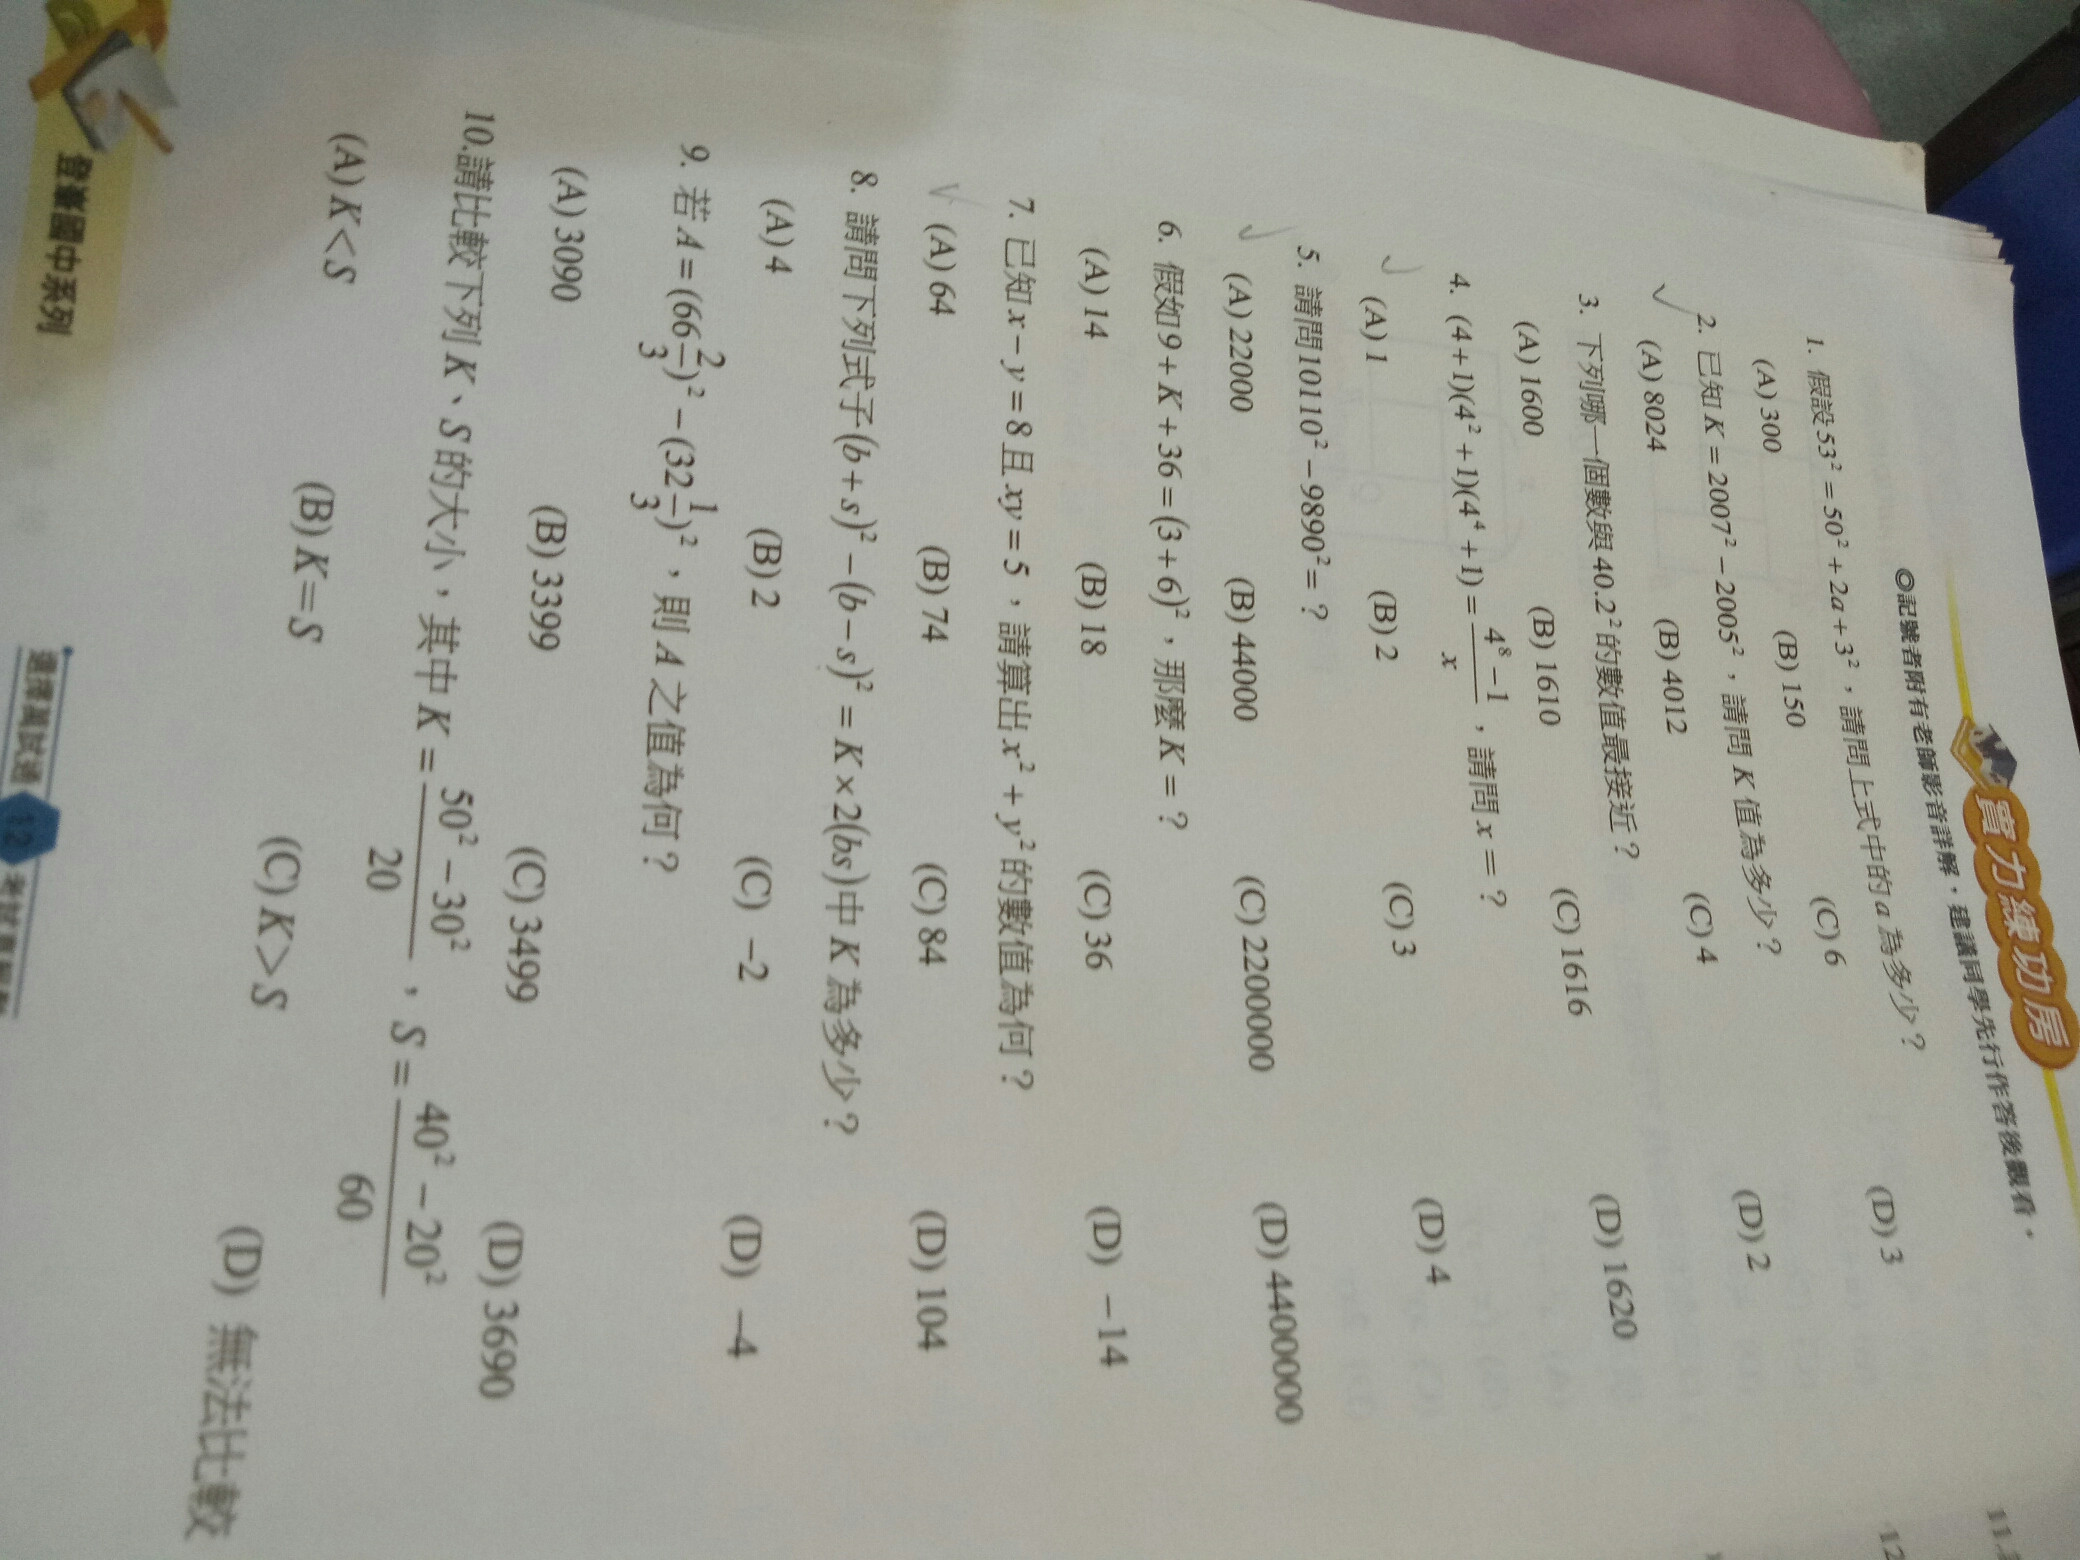 實力練功房
◎記號者附有老師影音詳解，建議同學先行作答後觀看。
1. 假設53² = 50² + 2a + 3²，請問上式中的 a 為多少？
(A) 300 (B) 150 (C) 6 (D) 3
2. 已知 K = 2007² − 2005²，請問 K 值為多少？
(A) 8024 (B) 4012 (C) 4 (D) 2
3. 下列哪一個數與 40.2² 的數值最接近？
(A) 1600 (B) 1610 (C) 1616 (D) 1620
4. (4+1)(4²+1)(4⁴+1) = (4⁸−1)/x，請問 x = ？
(A) 1 (B) 2 (C) 3 (D) 4
5. 請問10110² − 9890² = ？
(A) 22000 (B) 44000 (C) 2200000 (D) 4400000
6. 假如9 + K + 36 = (3+6)²，那麼 K = ？
(A) 14 (B) 18 (C) 36 (D) −14
7. 已知 x − y = 8 且 xy = 5，請算出 x² + y² 的數值為何？
(A) 64 (B) 74 (C) 84 (D) 104
8. 請問下列式子(b+s)² − (b−s)² = K × 2(bs)中 K 為多少？
(A) 4 (B) 2 (C) −2 (D) −4
9. 若 A = (66 2/3)² − (32 1/3)²，則 A 之值為何？
(A) 3090 (B) 3399 (C) 3499 (D) 3690
10.請比較下列 K、S 的大小，其中 K = (50² − 30²)/20，S = (40² − 20²)/60
(A) K<S (B) K=S (C) K>S (D) 無法比較
登峯國中系列
選擇萬試通 12
11.
12